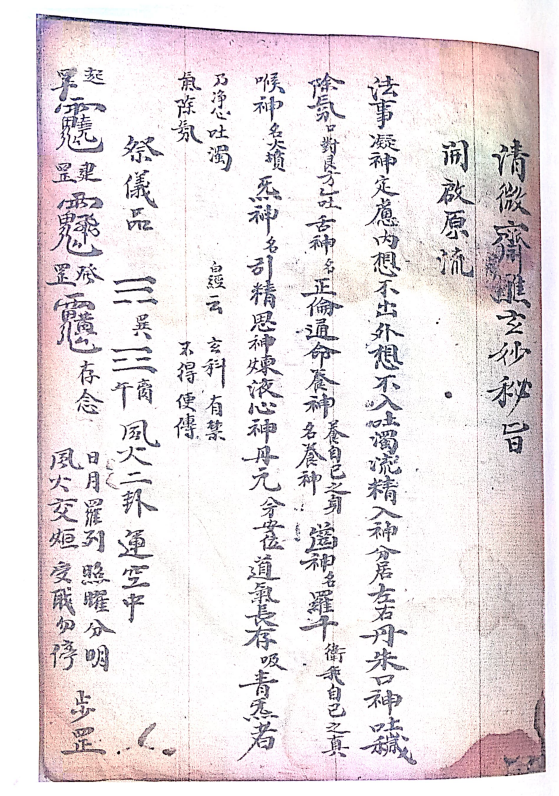 清微齋醮玄妙秘旨
開啟原流
法事凝神定慮內想不出外想不入吐濁流精入神分居左右丹朱口神吐穢
除氛口對艮方吐舌神名正倫通命養神養自己之身名養神齒神名羅千衛我自己之真
喉神名虎賁炁神名引精思神煉液心神丹元分安位道氣長存吸青炁者
乃淨心吐濁氣除氛 經云玄科有禁不得便傳
祭儀品 ☴巽☲離午 風火二卦運空中
起罡 建罡 發罡 存念日月羅列照曜分明風火交烜受職勿停 步罡